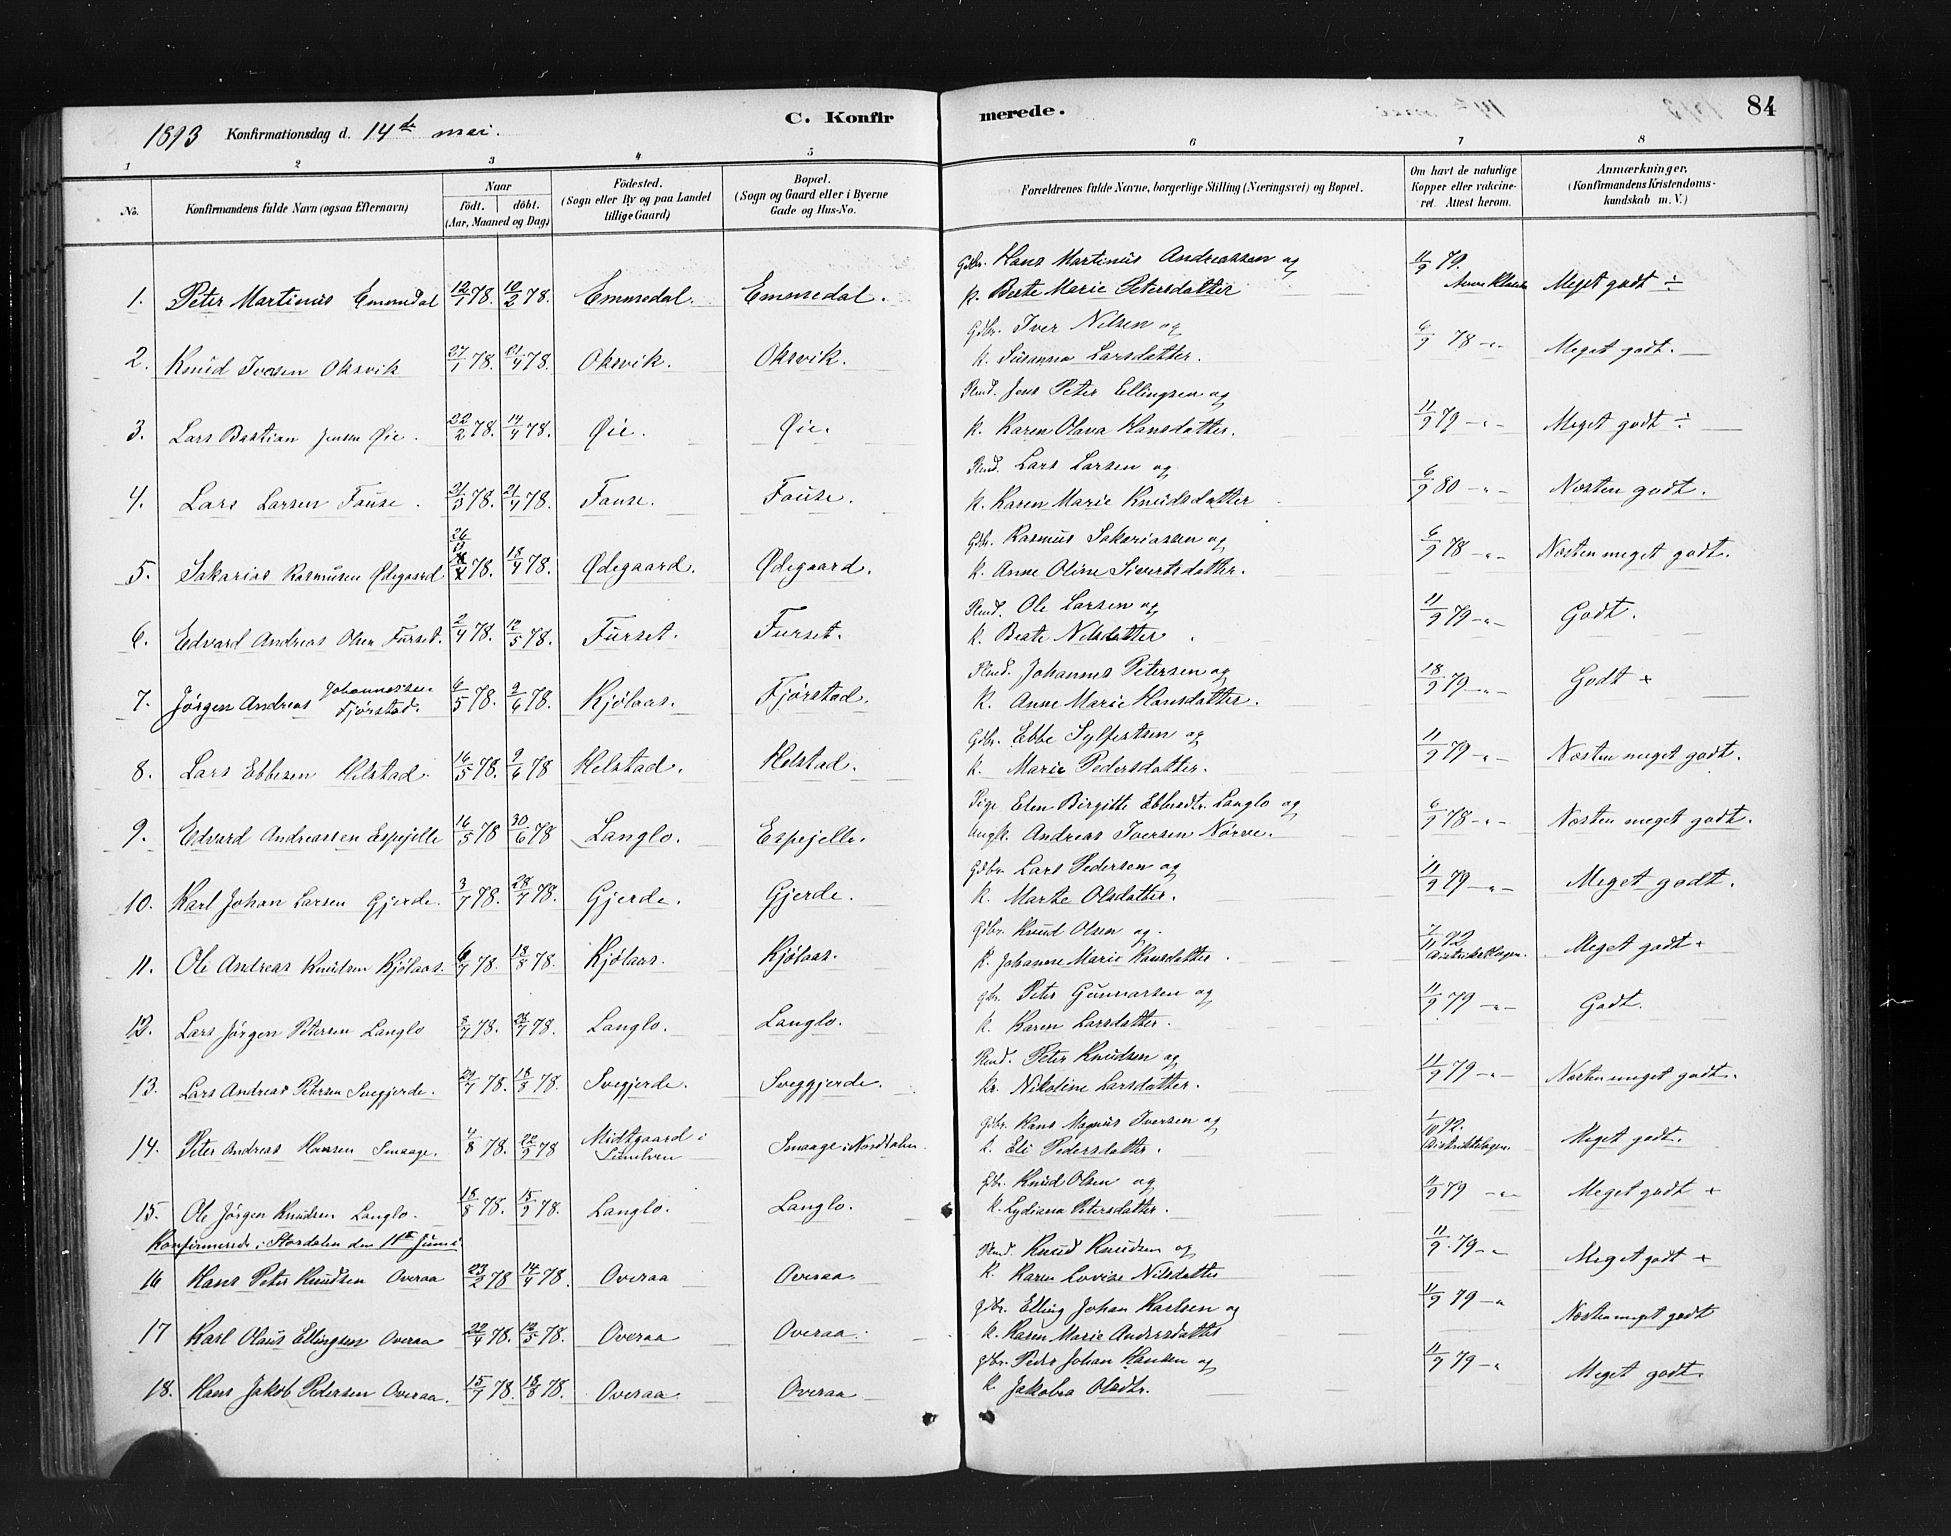 1893 Konfirmationsdag d. 14de mai. C. Konfirmerede. 84
1 2 3 4 5 6 7 8
No. Konfirmandens fulde Navn (ogsaa Efternavn) Naar födt. döbt. (Aar, Maaned og Dag) Födested. (Sogn eller By og paa Landet tillige Gaard) Bopæl. (Sogn og Gaard eller i Byerne Gade og Hus-No. Forældrenes fulde Navne, borgerlige Stilling (Næringsvei) og Bopæl. Om havt de naturlige Kopper eller vakcineret. Attest herom. Anmærkninger. (Konfirmandens Kristendomskundskab m. V.)
Gdbr. Hans Martinus Andreassen og
1. Peter Martinus Emmedal 12/1 78. 10/2 78. Emmedal. Emmedal. k. Berte Marie Petersdatter 11/9 79. Meget godt ÷
Gdbr. Iver Nilsen og
2. Knud Iversen Oksvik 27/1 78. 21/4 78. Oksvik. Oksvik. k. Susanna Larsdatter. 6/9 78 -"- Meget godt.
Plmd. Jens Peter Ellingsen og
3. Lars Bastian Jensen Øie. 22/2 78. 14/4 78. Øie. Øie. k. Karen Olava Hansdatter. 11/9 79 -"- Meget godt ÷
Plmd. Lars Larsen og
4. Lars Larsen Fause. 21/3 78. 21/4 78. Fause. Fause. k. Karen Marie Knudsdatter 6/9 80 -"- Næsten godt.
Gdbr. Rasmus Sakariassen og
5. Sakarias Rasmusen Ødegaard 26/3 78. 18/4 78. Ødegaard. Ødegaard. k. Anne Oline Sivertsdatter. 6/9 78 -"- Næsten meget godt.
Plmd. Ole Larsen og
6. Edvard Andreas Olsen Furset. 2/4 78. 12/5 78. Furset. Furset. k. Berte Nilsdatter. 11/9 79 -"- Godt.
Plmd. Johannes Petersen og
7. Jørgen Andreas Johannessen Fjørstad. 6/5 78. 2/6 78. Kjølaas. Fjørstad. k. Anne Marie Hansdatter. 18/9 79 -"- Godt +
Gdbr. Ebbe Sylfestsen og
8. Lars Ebbesen Helstad. 16/5 78. 9/6 78 Helstad. Helstad. k. Marie Pedersdatter. 11/9 79 -"- Næsten meget godt.
Pige Elen Birgitte Ebbesdtr. Langlo og
9. Edvard Andreassen Espejelle 16/5 78 30/6 78 Langlo. Espejelle. ungk. Andreas Iversen Nørve. 6/9 78 -"- Næsten meget godt.
Gdbr. Lars Pedersen og
10. Karl Johan Larsen Gjerde. 3/7 78. 28/7 78. Gjerde. Gjerde. k. Marte Olsdatter. 11/9 79 -"- Meget godt.
Gdbr. Knud Olsen og
11. Ole Andreas Knutsen Kjølaas. 6/7 78. 18/8 78. Kjølaas. Kjølaas. k. Johanne Marie Hansdatter. 7/11 92 Distriktslægen. Meget godt +
Gbr. Peter Gunnarsen og
12. Lars Jørgen Petersen Langlo 8/7 78. 28/7 78. Langlo. Langlo. k. Karen Larsdatter. 11/9 79 -"- Godt.
Plmd. Peter Knudsen og
13. Lars Andreas Petersen Svegjerde. 21/7 78. 18/8 78. Svegjerde. Sveggjerde. k. Nikoline Larsdatter. 11/9 79 -"- Næsten meget godt.
Gbr. Hans Magnus Iversen og
14. Peter Andreas Hansen Smaage. 4/8 78. 22/9 78 Midtgaard i Sunelven Smaage i Norddalen. k. Eli Pedersdatter. Distriktslægen. Meget godt.
Gbr. Knud Olsen og
15. Ole Jørgen Knudsen Langlo. 18/8 78. 15/9 78. Langlo. Langlo. k. Lydiana Petersdatter. 11/9 79 -"- Meget godt +
Konfirmerede i Stordalen den 11te Juni:
Plmd. Knud Knudsen og
16 Hans Peter Knudsen Overaa 23/2 78 14/4 78. Overaa Overaa. k. Karen Lovise Nilsdatter 11/9 79 -"- Meget godt +
Gbr. Elling Johan Karlsen og
17 Karl Olaus Ellingsen Overaa 22/4 78. 12/5 78. Overaa Overaa. k. Karen Marie Andersdatter 11/9 79 -"- Næsten meget godt
Gbr. Peder Johan Hansen og
18. Hans Jakob Pedersen Overaa. 15/7 78. 18/8 78. Overaa. Overaa k. Jakoba Olsdtr. 11/9 79 -"- Meget godt.